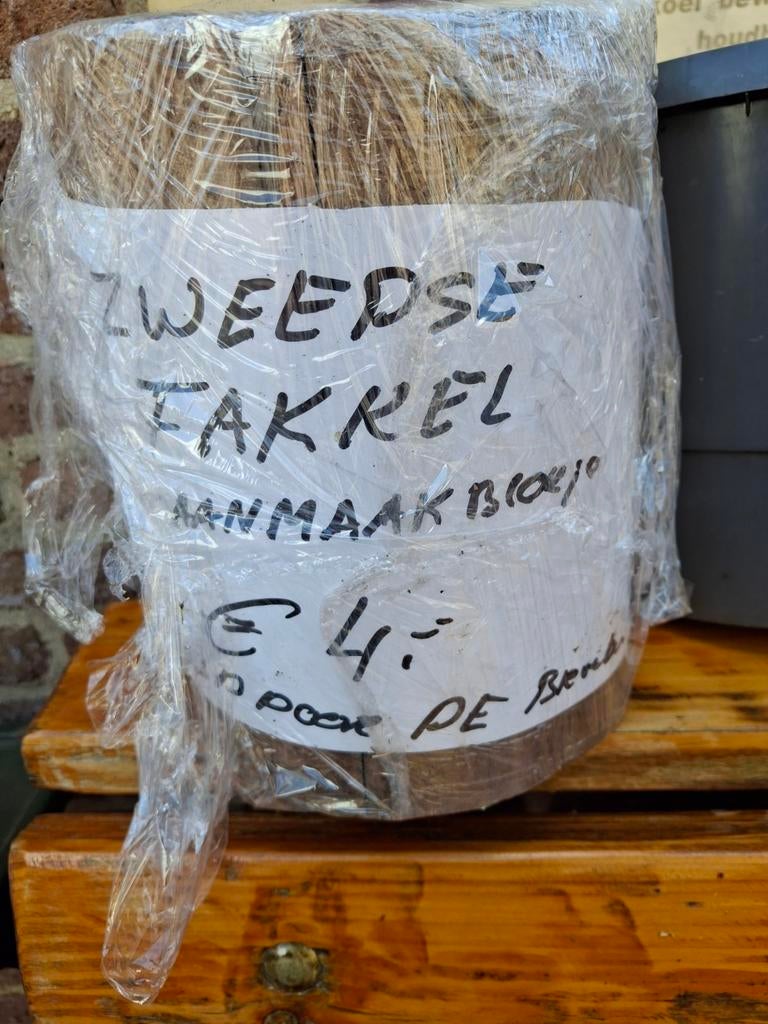 koel bew
houdb
ZWEEDSE
FAKKEL
AANMAAKBLOKJE
€ 4,=
DOOR DE